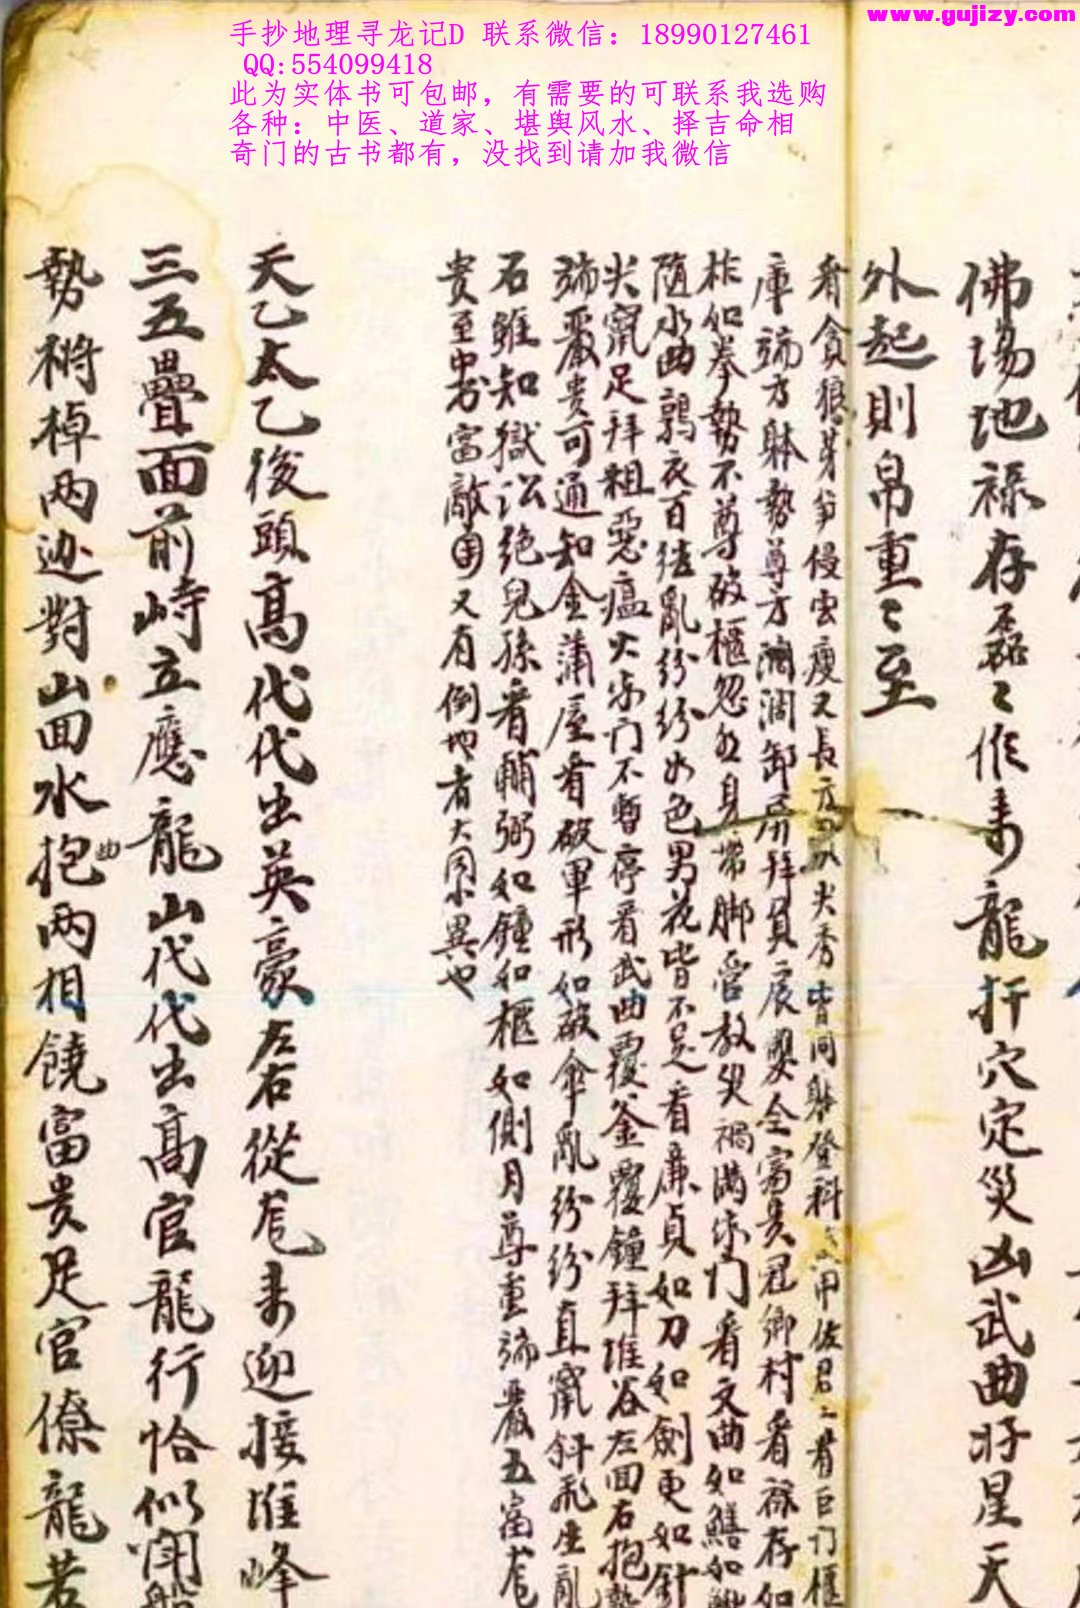 www.gujizy.com
手抄地理寻龙记D 联系微信：18990127461
QQ:554099418
此为实体书可包邮，有需要的可联系我选购
各种：中医、道家、堪舆风水、择吉命相
奇门的古书都有，没找到请加我微信
佛場地禄存磊〻作来龍扦穴定災凶武曲将星天
外起則帛重〻至
看貪狼芽笋侵雲瘦又長方 尖秀皆同躰登科 甲佐君〻看巨门樻
庫端方躰勢尊方濶 卸 拜負扆 全富貴冠鄉村看禄存如
柞如拳勢不尊破樞忽 身带脚 教災禍满家门看文曲如鱔如
随水曲鶉衣百结亂纷纷 色男花皆不足看廉貞如刀如劍更如针
尖竄足拜粗惡瘟火家门不暫停看武曲覆釜覆鐘拜堆谷左回右抱勢
端嚴贵可通知金蒲屋看破軍形如破傘亂纷纷直竄斜飛生亂
石雖知獄讼绝兒孫看輔弼如鐘如樞如側月尊重端嚴五富
贵至中男富敵國又有倒地者大同小異也
天乙太乙後頭高代代出英豪左右從 来迎接堆峰
三五疊面前峙立應龍山代代出高官龍行恰似
勢椭棹两边對山回水抱曲两相饒富贵足官僚龍若